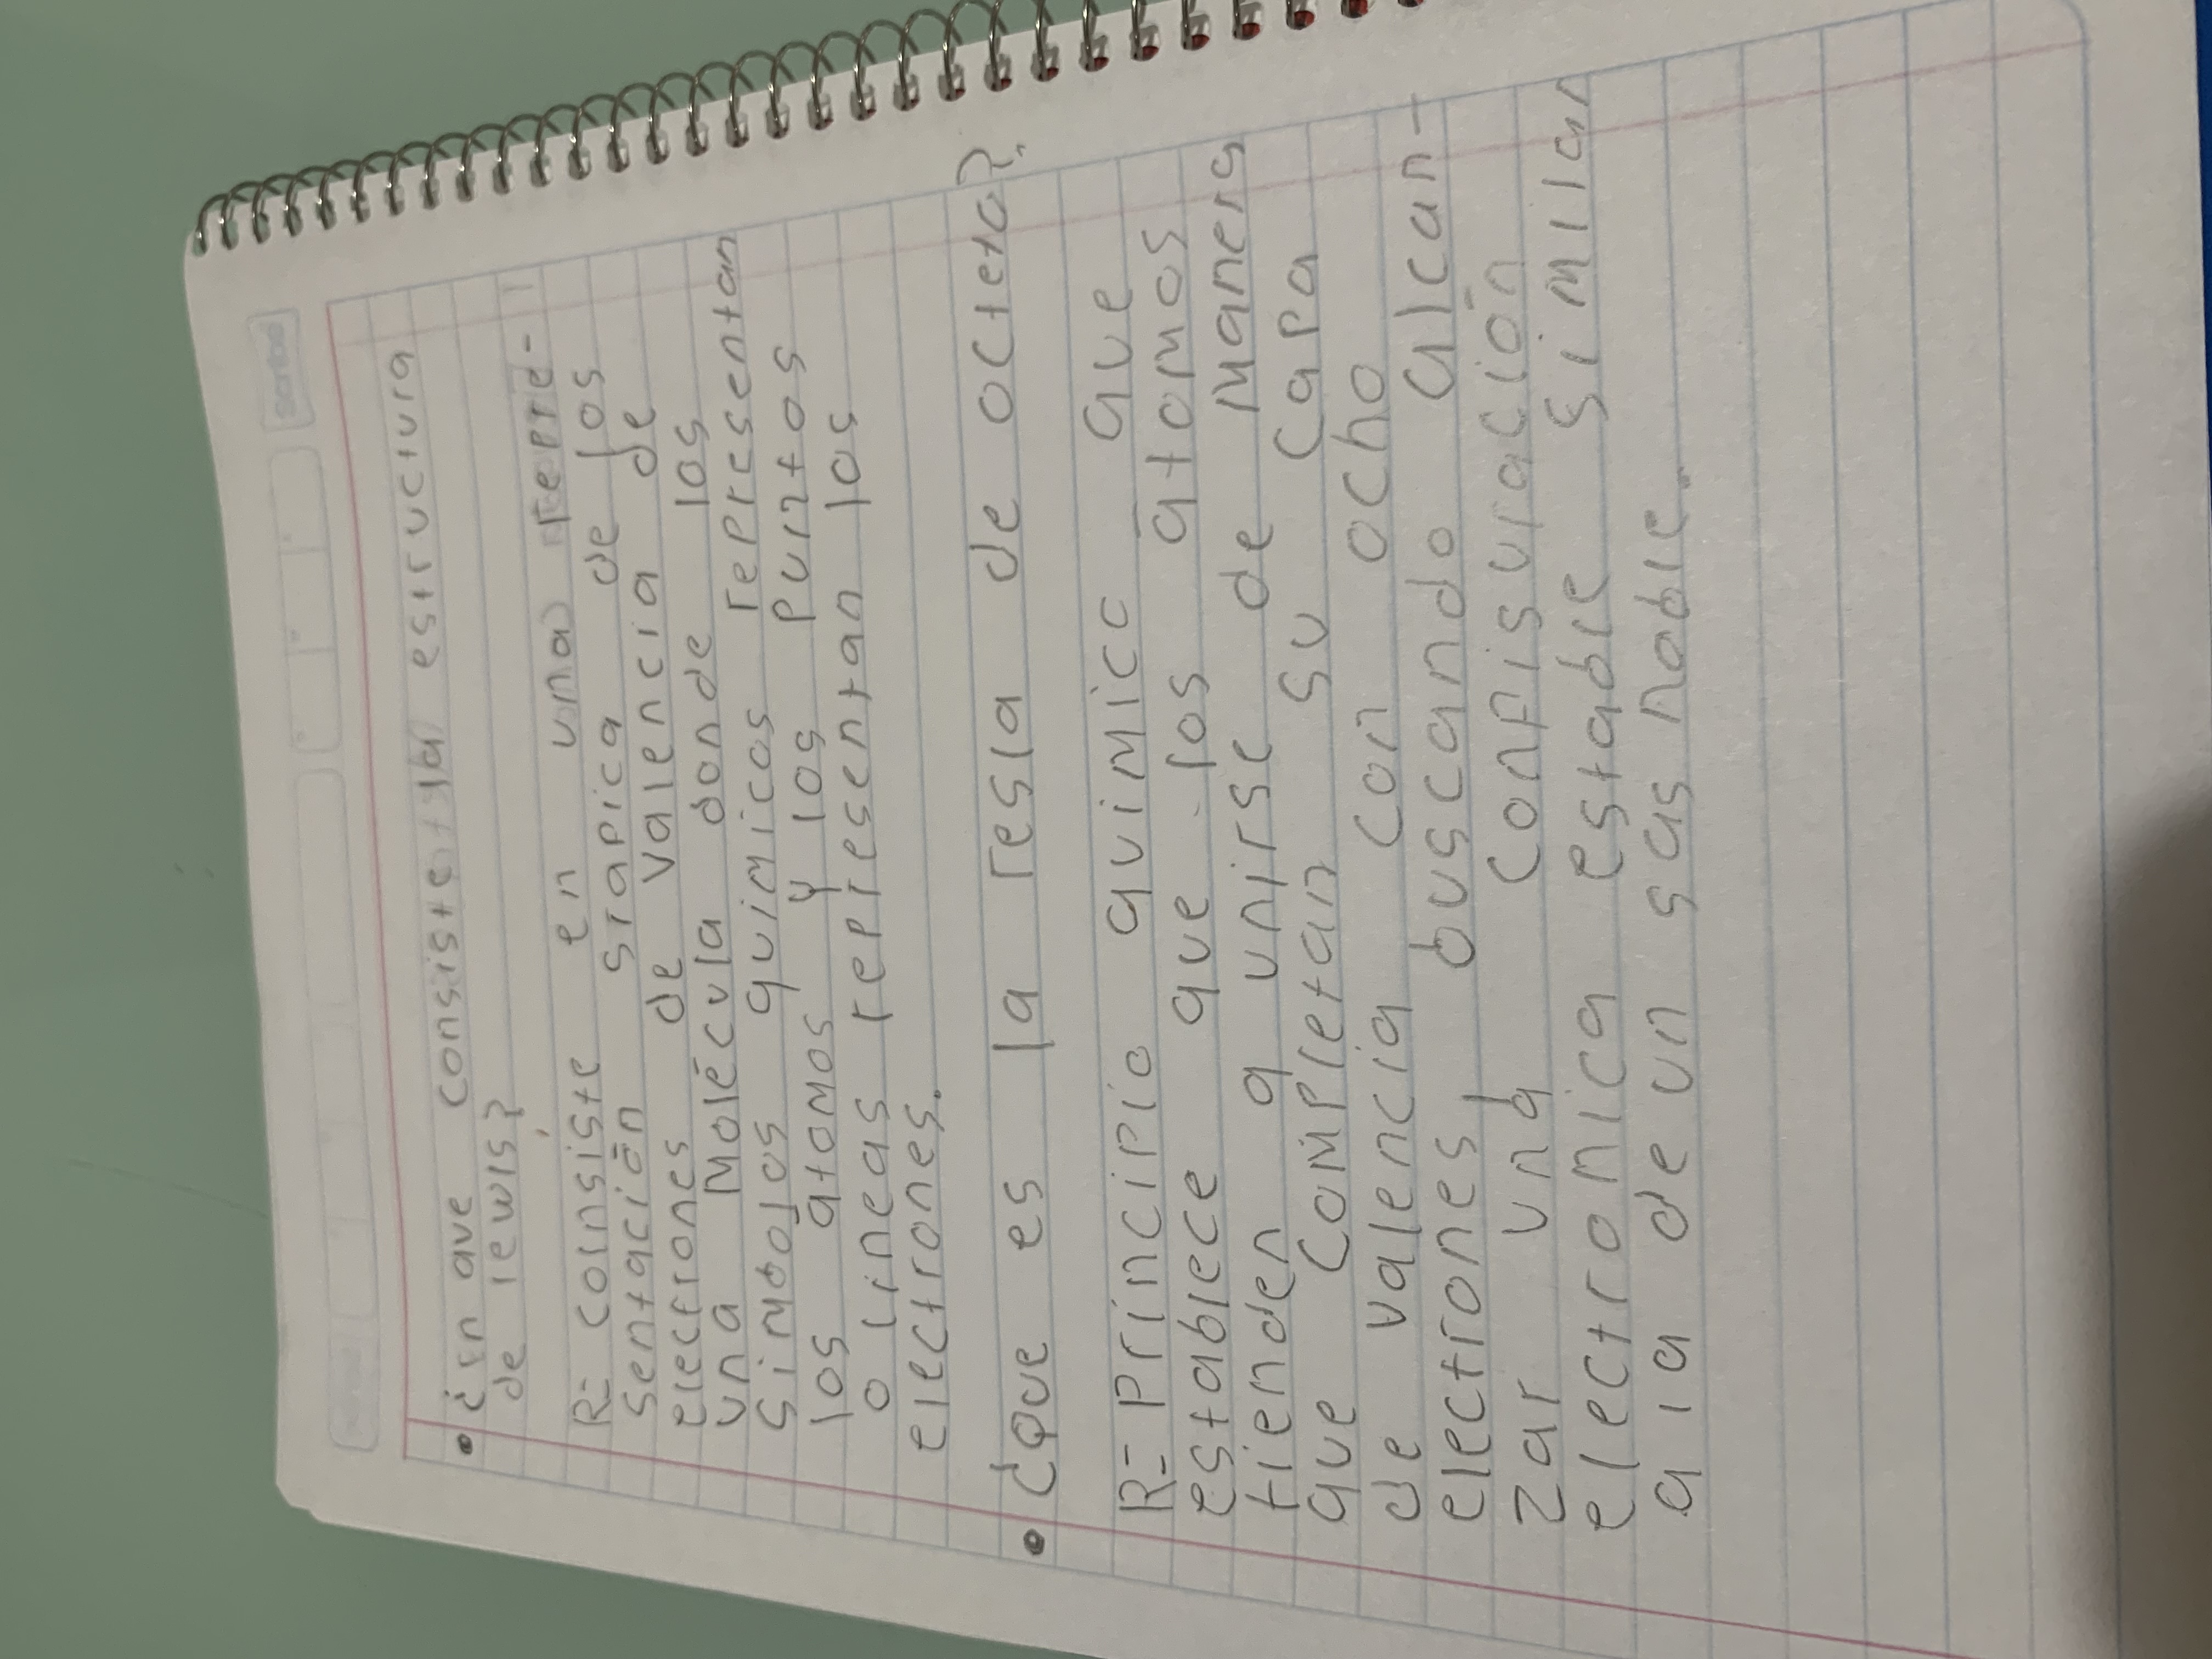 • ¿En que consiste la estructura
de lewis?
R= Coinsiste en una repre-
sentación grapica de los
electrones de valencia de
una molécula donde los
simbolos quimicos representan
los atomos y los puntos
o lineas representan los
electrones.
• ¿Que es la regla de octeto?
R= Principio quimico que
establece que los atomos
tienden a unirse de manera
que completan su capa
de valencia con ocho
electrones, buscando alcan-
zar una configuración
electronica estable similar
a la de un gas noble.